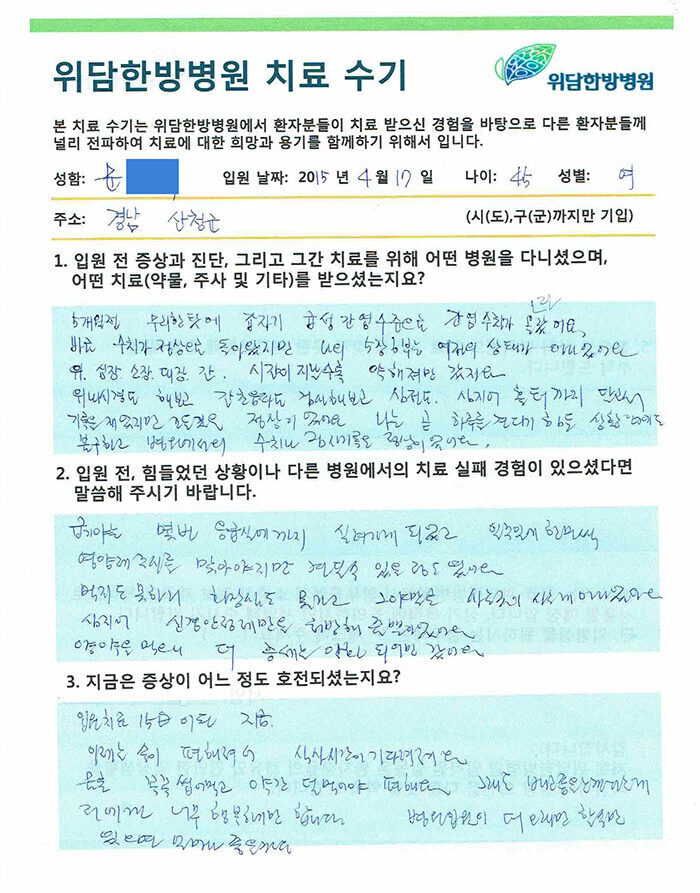 위담한방병원 치료 수기
위담한방병원
본 치료 수기는 위담한방병원에서 환자분들이 치료 받으신 경험을 바탕으로 다른 환자분들께
널리 전파하여 치료에 대한 희망과 용기를 함께하기 위해서 입니다.
성함: 윤 입원 날짜: 2015 년 4 월 17 일 나이: 45 성별: 여
주소: 경남 산청군 (시(도),구(군)까지만 기입)
1. 입원 전 증상과 진단, 그리고 그간 치료를 위해 어떤 병원을 다니셨으며,
어떤 치료(약물, 주사 및 기타)를 받으셨는지요?
5개월전 무리한 탓에 갑자기 급성 간염수준으로 간염 수치가 올랐어요
바로 수치가 정상으로 돌아왔지만 나의 5장6부는 예전의 상태가 아니었어요
위. 심장. 소장. 대장. 간. 시간이 지날수록 약해져만 갔지요
위내시경도 해보고 초음파도 검사해보고 심전도. 심지어 홀터까지 단서
기록은 재었지만 정상이었어요 나는 곧 하루를 견디기 힘든 상황임에도
불구하고 병원에서의 수치나 검사기록은 정상이었어요.
2. 입원 전, 힘들었던 상황이나 다른 병원에서의 치료 실패 경험이 있으셨다면
말씀해 주시기 바랍니다.
급기야는 몇번 응급실에까지 실려가게 되었고 일주일에 한번씩
영양제 주사를 맞아야지만 견딜수 있을 정도 였어요
먹지도 못하게 되고 그야말로 사는것이 아니었어요
심지어 신경안정제만을 처방해 주었어요
약을 먹으니 더 증세는 악화 되어만 갔어요
3. 지금은 증상이 어느 정도 호전되셨는지요?
입원치료 15일 이 된 지금.
이제는 속이 편해져서 식사시간이 기다려져요
꼭꼭 씹어먹고 약간 덜먹어야 편해요. 그래도
저에게는 너무 행복하기만 합니다. 병원입원이 더
좋을거